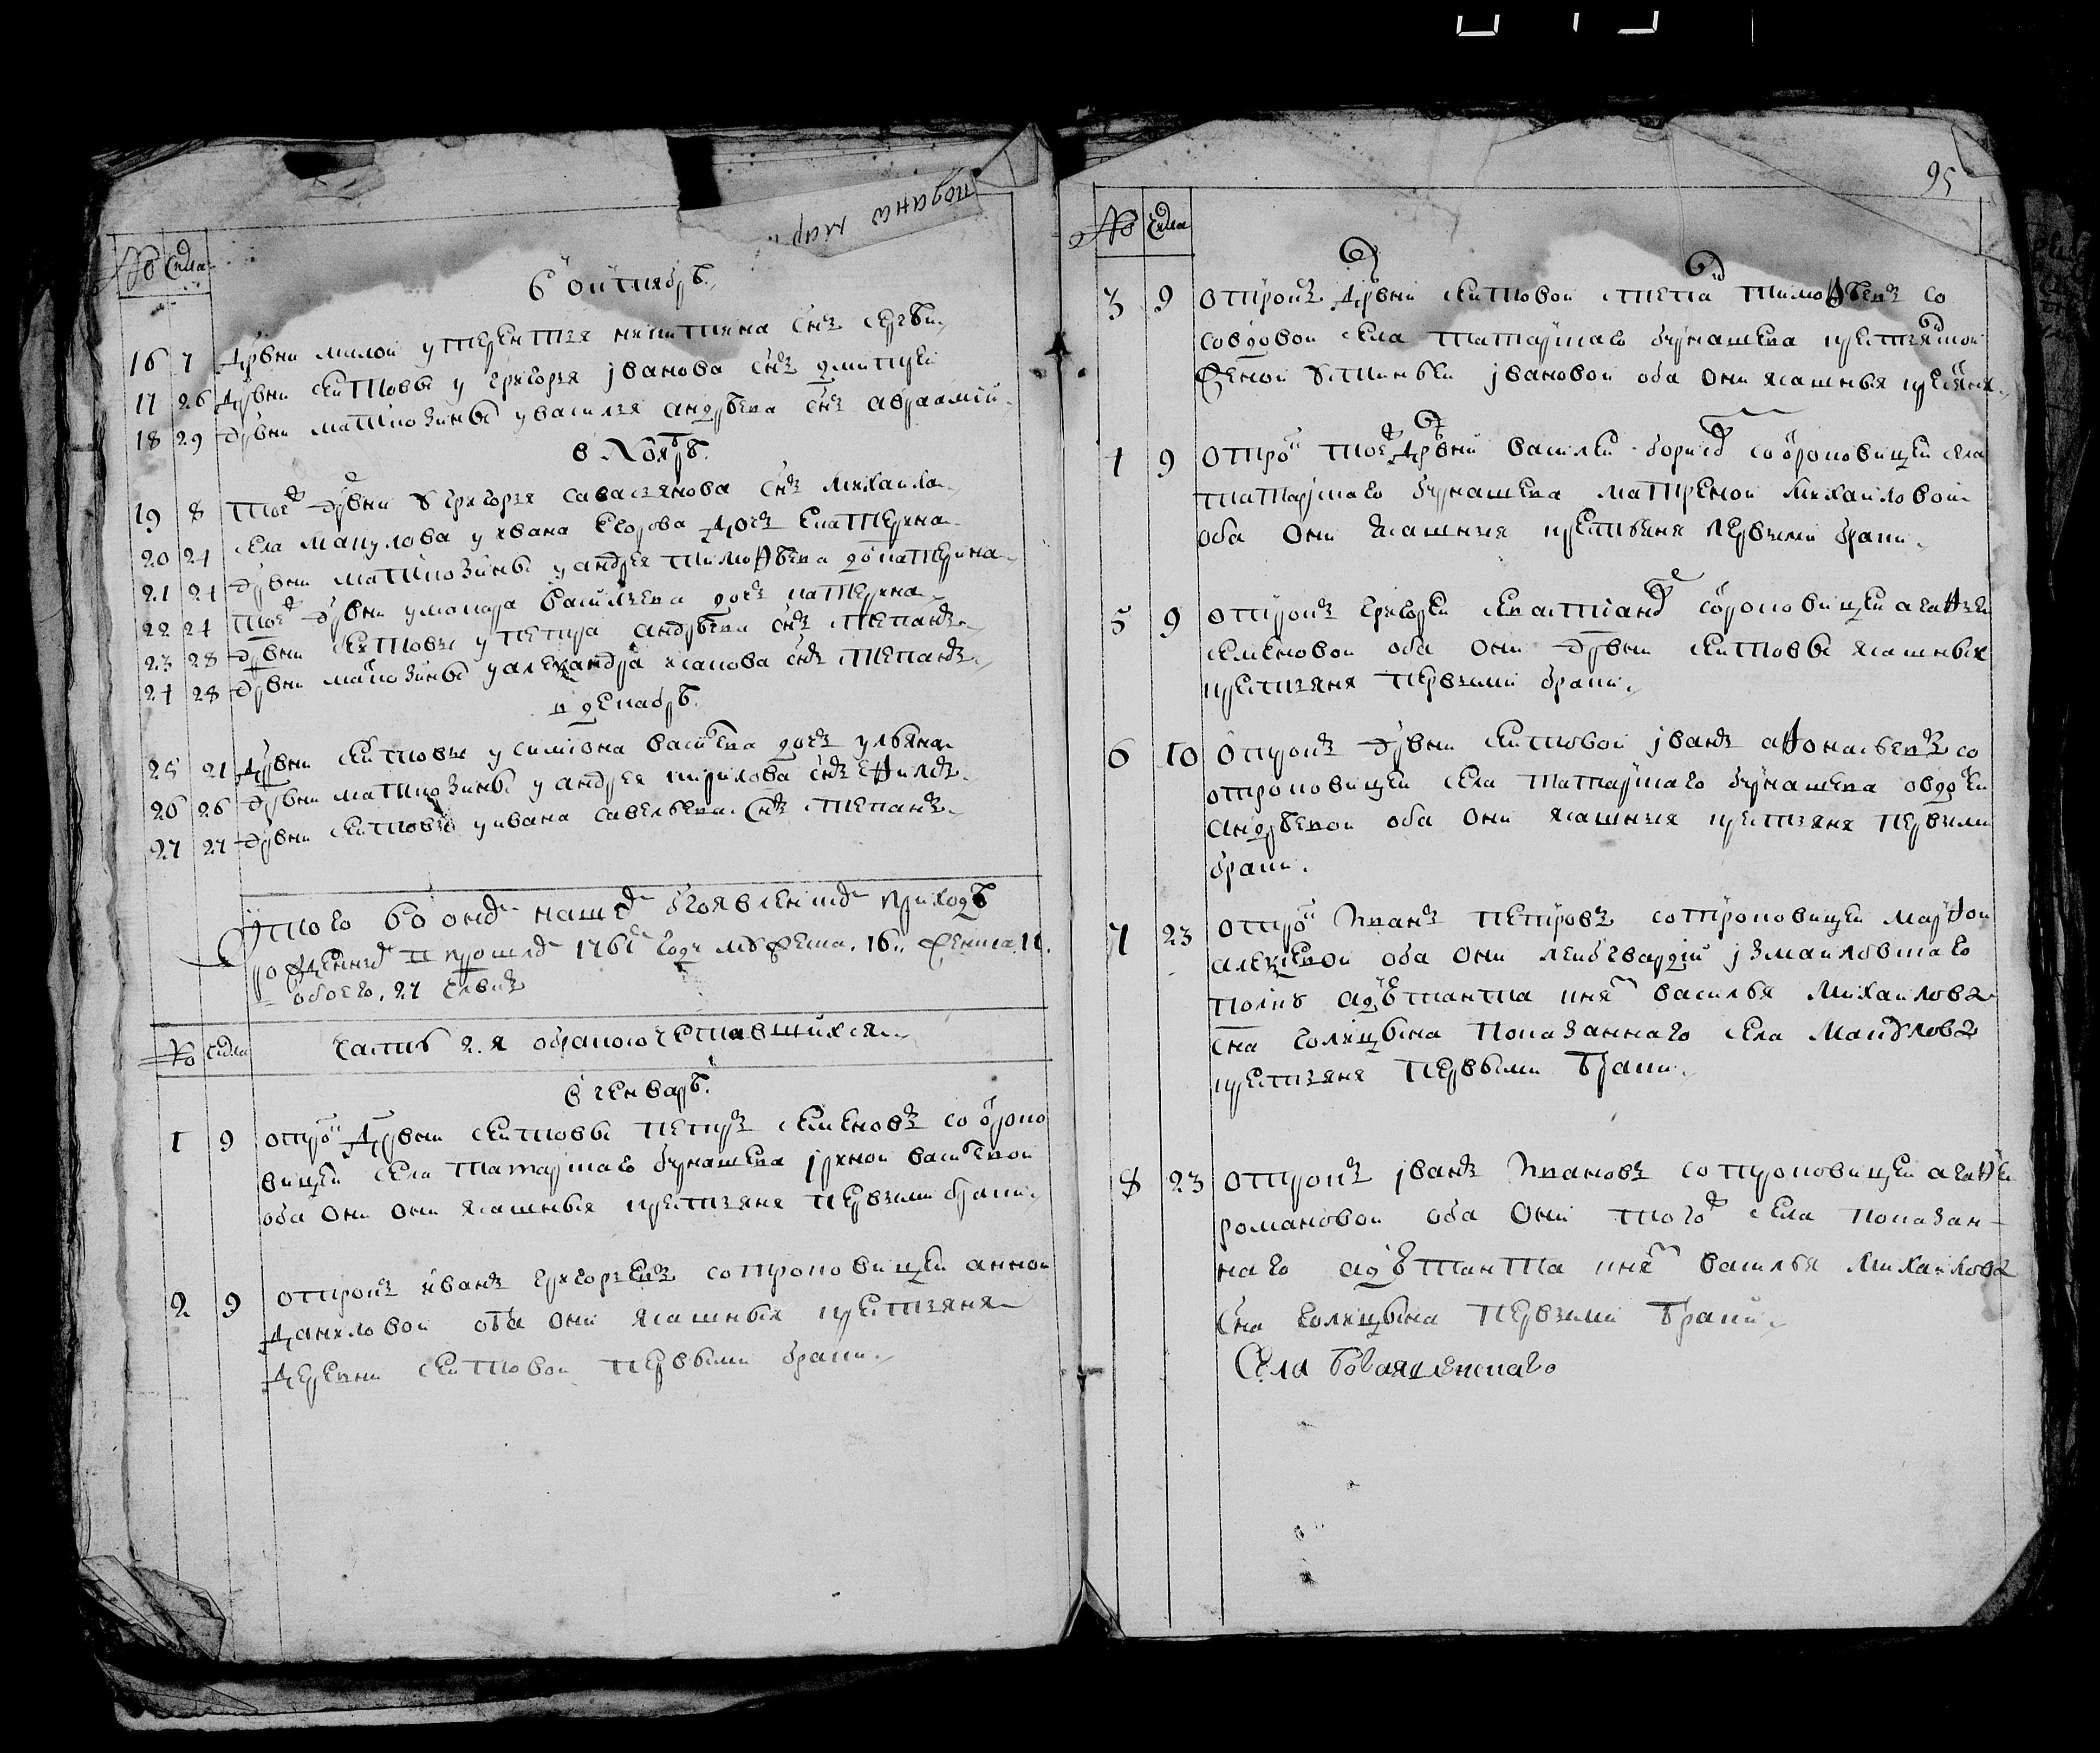 № Числа
в октябрѣ
16 7 Дрвни милои у терентья никитина снъ сергѣи
17 26 Дрвни ситовы у григорья іванова снъ дмитреи
18 29 дрвни матюзины у василья андрѣева снъ авраамии
в Ноябрѣ
19 8 тоеж дрвни у григорья савасьянова снъ михаила
20 24 села макулова у ивана егорова дочь екатерина
21 24 дрвни матюзины у андрея тимоѳѣева до катерина
22 24 тоеж дрвни у макара васильева дочь катерина
23 28 дрвни ситовы у петра андрѣева снъ степанъ
24 28 дрвни матюзины у александра исакова снъ степанъ
в декабрѣ
25 21 Дрвни ситовы у симиона васильева дочь ульяна
26 26 дрвни матюзины у андрея кирилова снъ
27 27 дрвни ситовы у ивана савельева снъ степанъ
Итого во оном нашем бгоявленском приходѣ
рожденных в прошлом году мужеска 16 женска 11
обоего 27 члвкъ
№ числа Часть 2.я о бракосочетавшихся
в генварѣ
1 9 отрок Дрвни ситовы петръ семеновъ со отроко
вицеи села татарскаго бурнашева іриной васильевой
оба они они ясашныя крестьяня первым браком
2 9 отрокъ иванъ григорьевъ со отроковицеи анной
даниловой оба они ясашныя крестьяня
Деревни ситовой первым браком
95
№ Числа
3 9 отрокъ Дрвни ситовои степанъ тимоѳѣевъ со
со вдовои села татарскаго бурнашева крестьянской
женой устиньеи івановой оба они ясашныя крестьяня
4 9 отрок тоеж Дрвни василеи борисов со отроковицеи села
татарскаго бурнашева матреной михаиловой
оба они ясашныя крестьяня первым браком
5 9 отрокъ григореи савастіанов со отроковицеи агаѳьеи
семеновой оба они дрвни ситовы ясашныя
крестьяня первым браком
6 10 отрокъ дрвни ситовой іванъ аѳонасьевъ со
отроковицеи села татарскаго бурнашева овдотьеи
андрѣевой оба они ясашныя крестьяня первым
браком
7 23 отрок иванъ петровъ со отроковицеи марѳои
алексѣевой оба они леибгвардіи ізмаиловскаго
полку адютанта кнзя василья михаилова
сна голицына показаннаго села макулова
крестьяня первым браком
8 23 отрокъ іванъ ивановъ со отроковицеи агаѳьеи
романовой оба они тогож села показан-
наго адютанта кнзя василья михаилова
сна голицына первым браком
Села богоявленскаго